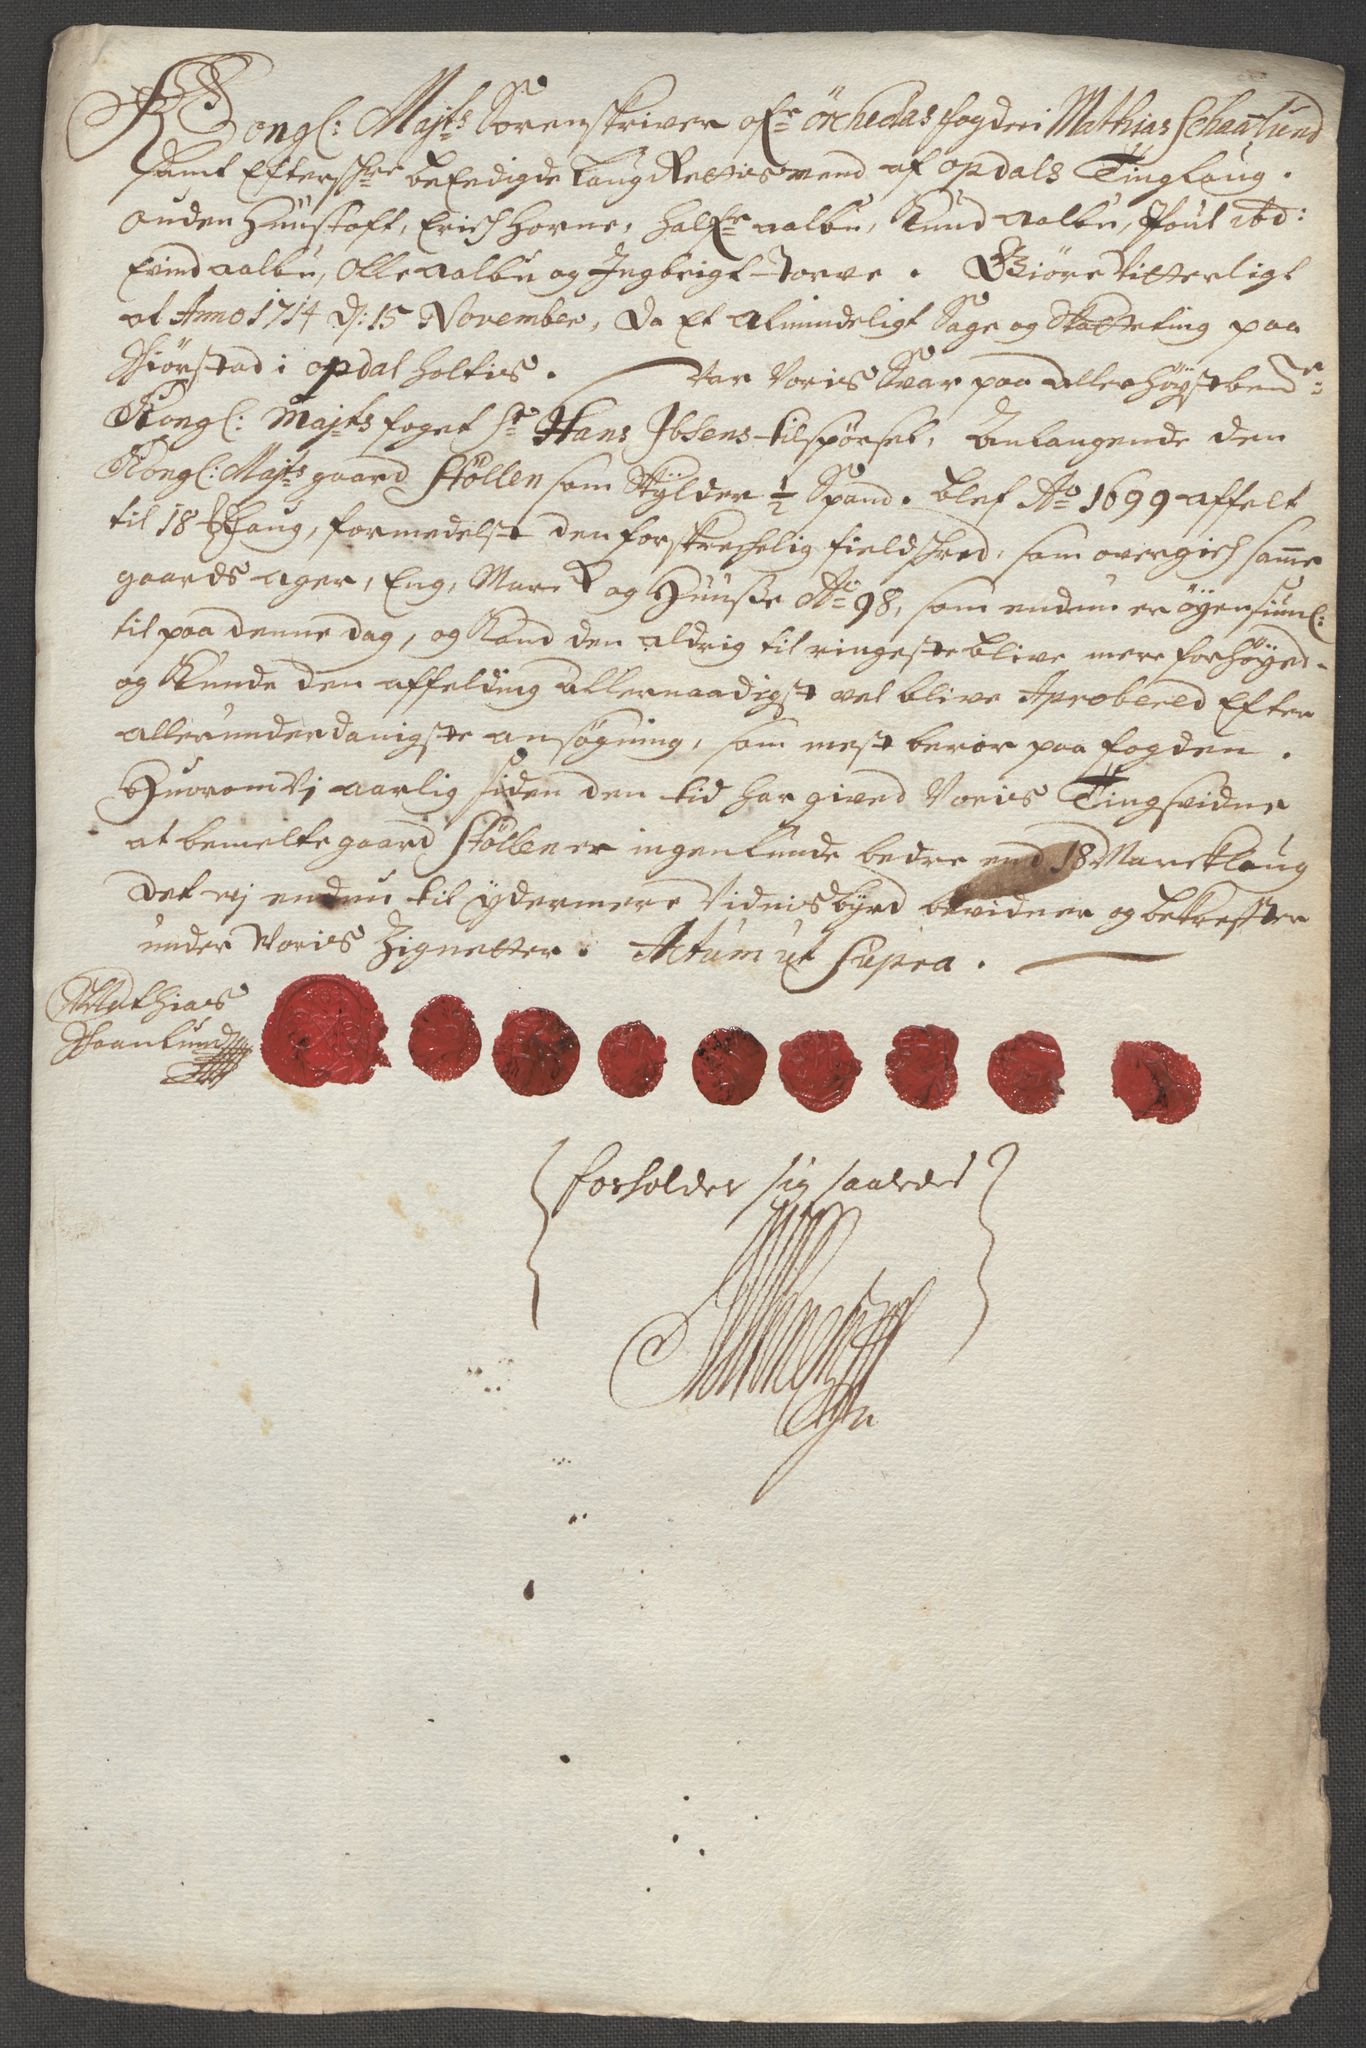 Kongl: Majts Sorenskriver ofr Örchedals fogderi Mathias Schaanlund
Samt Efterschrne beEedigde Laug Rettismend af opdals Tinglaug.
Anden Huustoft, Erich horne, halfr aalbu, Knud aalbu, Poul ibd:
Evind aalbu, Olle aalbu og Ingbrigt Torve. Giöre Vitterligt
at Anno 1714 d: 15 November, da Et almindeligt Sage og Skatteting paa
Wiörstad i opdal holtis. Var Voris Svar paa allerhöystbemte:
Kongl: Majts foget Sr Hans Ibsens tilspörsel, Anlangende den
Kongl: Majts gaard Stöllen som Skylder ½ Spand. blef Ao 1699 affelt
til 18 Mlaug, formedelst den forskrechelig fieldschred, som overgich samme
gaards ager, Eng, March og Huusse Ao 98, som endnu er öyensiunl:
til paa denne dag, og Kand den aldrig til ringeste blive mere forhöyed
og Kunde den affelding allernaadigst vel blive Aprobered Efter
allerunderdanigste ansögning, som mest beror paa fogden.
Huorom Vj aarlig siden den tid har gived Voris Tingsvidne
at bemelte gaard Stöllen er ingenlunde bedre end 18 Marcklaug
Det vj endnu til ydermere Vidnisbyrd bevidner og bekreffter
under Voris Zignetter. Actum ut Supra.
Mathias
Schaanlund
forholder sig saaledes